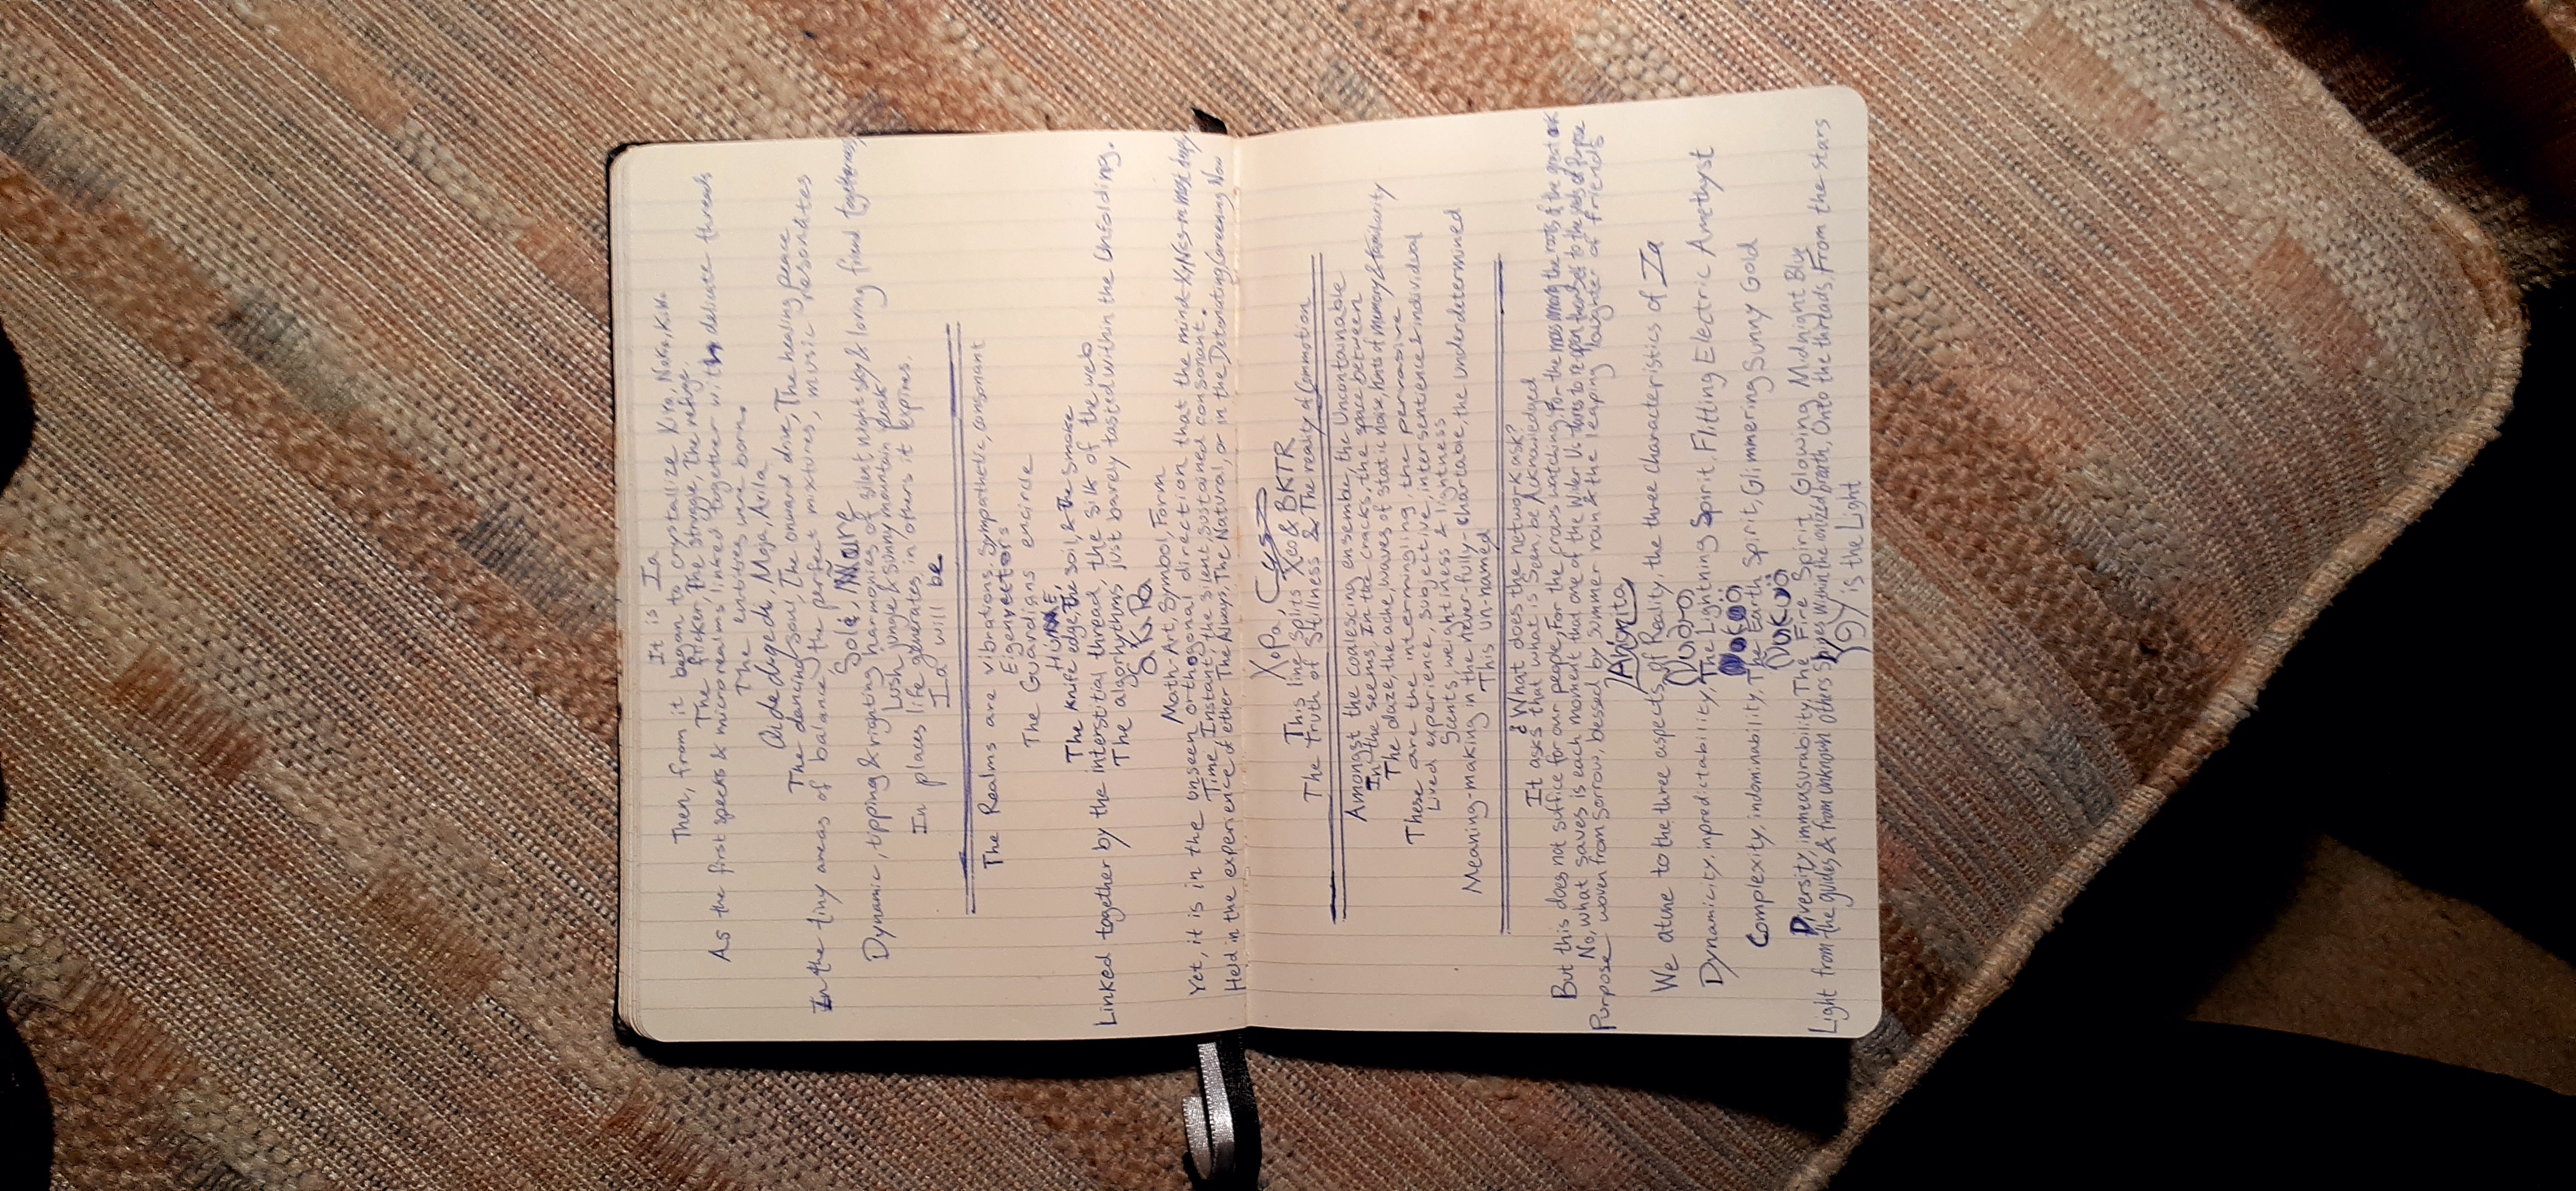 It is Ia
Then, from it began to crystallize Kira, Naka, Kiwa
The flicker, The struggle, The refuge.
As the first specks & micro realms linked together with delicate threads
The entities were born.
Moja, Avila
The dancing soul, The onward drive, The healing peace
In the tiny areas of balance, the perfect mixtures, music resonates
Solé, Mare
Dynamic, tipping & righting harmonies of silent night sky & loving friend togetherness
Lush jungle & skinny mountain peak
In places life generates in others it expires.
Ia will be
The Realms are vibrations. Sympathetic, consonant
Eigenvectors
The Guardians encircle
The knife edge, the soil, & the smoke
Linked together by the interstitial thread, the silk of the web
The algorhythms just barely tasted within the Unfolding.
Math-Art, Symbol, Form
Yet, it is in the unseen orthogonal direction that the mind
Time, Instant, the silent, sustained consonant.
Held in the experience of either The Always, The Natural, or in the Detonating Careening Now
This line splits Xeo & BKTR
The truth of Stillness & The reality of Commotion
Amongst the coalescing ensemble, the Uncontainable
In the seems, In the cracks, the space between
The daze, the ache, waves of static noise, hints of memory & familiarity
These are the intermingling, the pervasive
Lived experience, subjective, intersentience & individual
Scents, weightiness & lightness
Meaning-making in the never-fully-chartable, the underdetermined
This un-named
¿What does the network ask?
It asks that what is Seen, be Acknowledged
But this does not suffice for our people, For the crows watching, For the moss among the roots of the great oak
No, what saves is each moment that one of the Wider Us dares to re open herself to the webs of Purpose
Purpose woven from Sorrow, blessed by summer rain & the leaping laughter of friends
We atune to the three aspects of Reality, the three characteristics of Ia
Dynamicity, inpredictability, The Lightning Spirit, Flitting Electric Amethyst
Complexity, indominability, The Earth Spirit, Glimmering Sunny Gold
Diversity, immeasurability, The Fire Spirit Glowing Midnight Blue
Light from the guides & from unknown Others Shines Within the ionized breath, Onto the threads, From the stars
is the Light